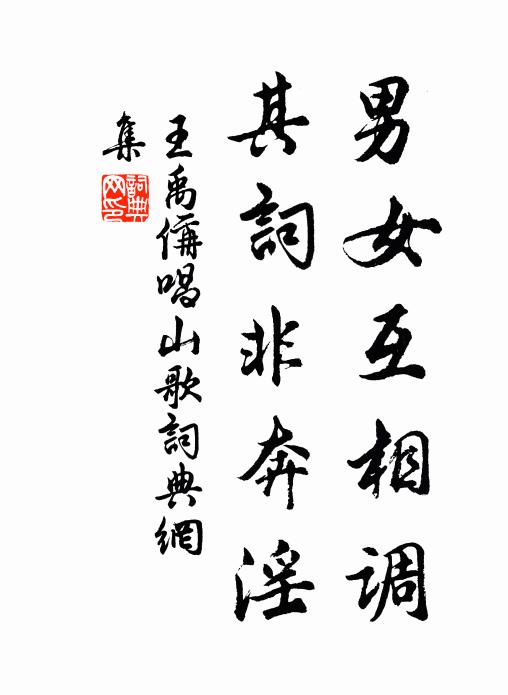 男女互相调
其詞非奔淫
王禹偁唱山歌詞典網
集
詞典
网印